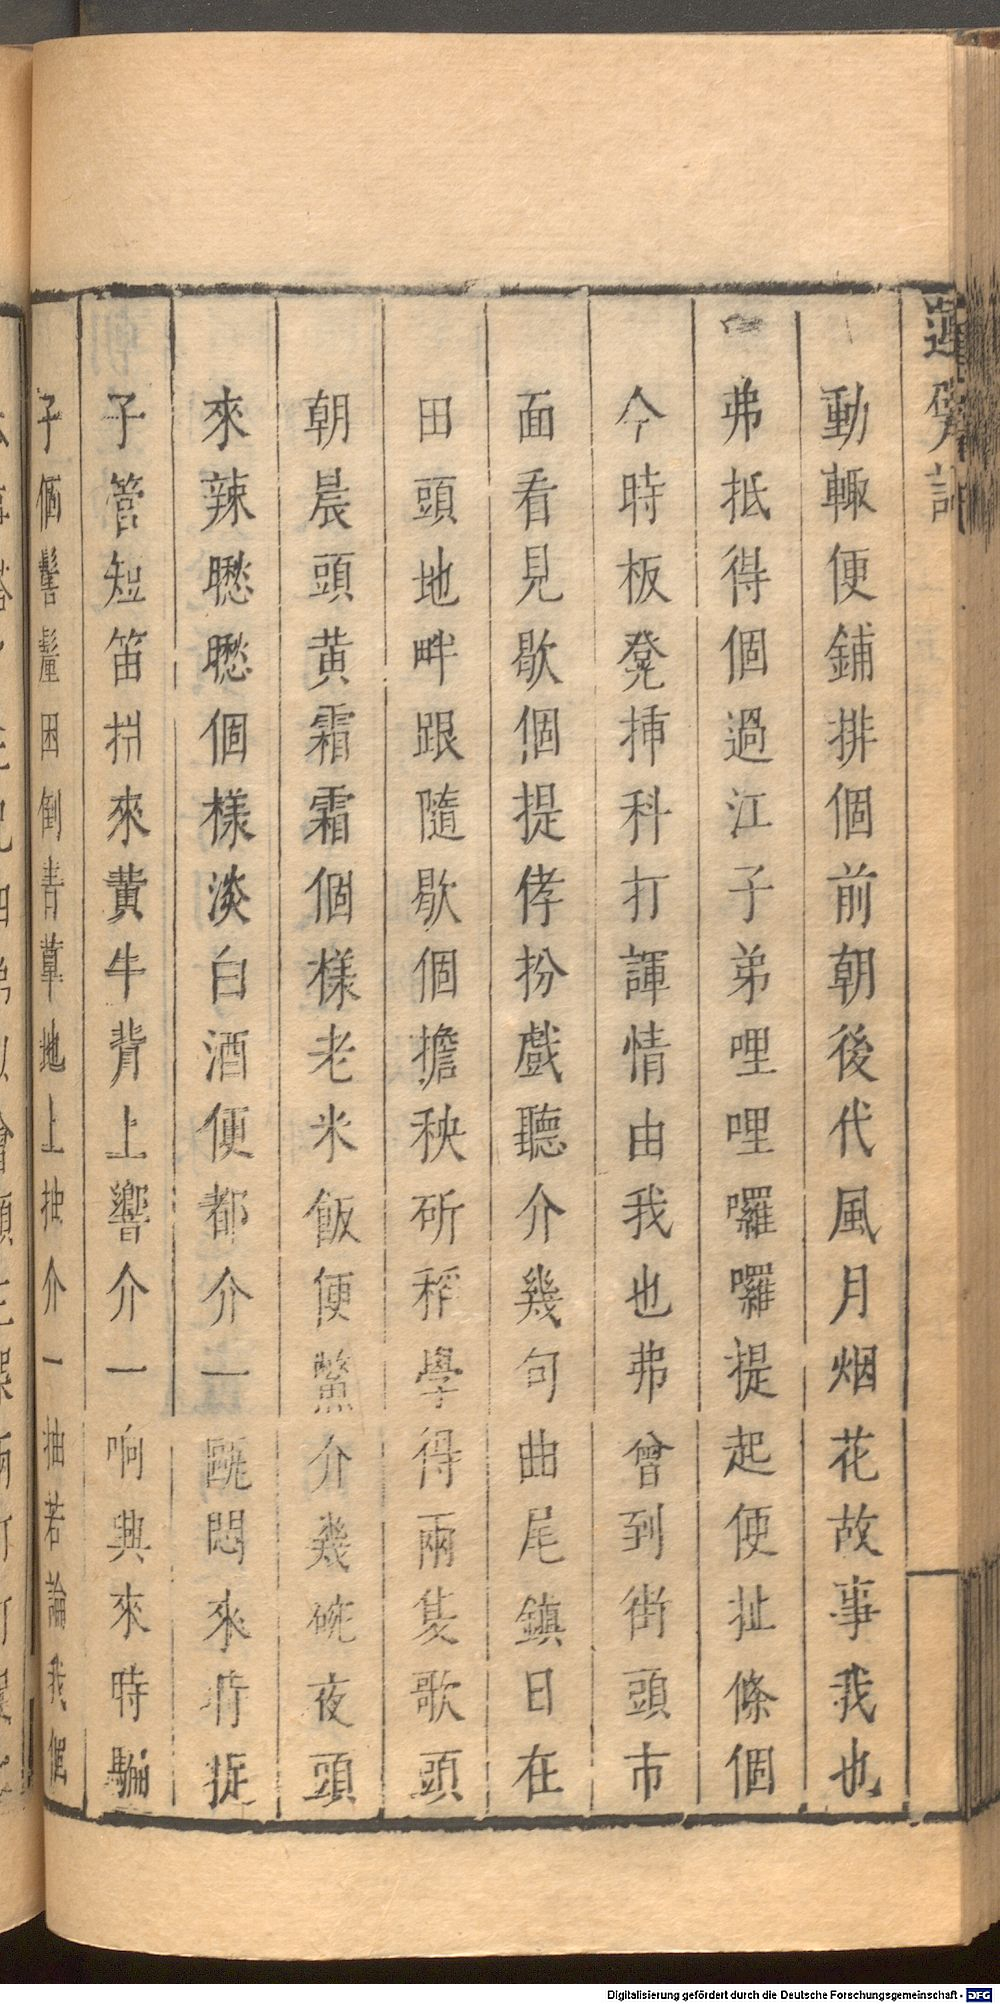 動輙便鋪排個前朝後代風月烟花故事我也
弗抵得個過江子弟哩哩囉囉提起便扯條個
今時板凳揷科打諢情由我也弗曾到街頭市
面看見歇個提侼扮戲聽介幾句曲尾鎮日在
田頭地畔跟隨歇個擔秧斫稻學得兩隻歌頭
朝晨頭黄霜霜個樣老米飯便鱉介幾碗夜頭
來辣𦗟𦗟個樣淡白酒便都介一跳悶來時捉
子管短笛捎來黄牛背上響介一响興來時騸
子個髻髽困倒青草地上抽介一抽若論我個
Digitalisierung gefördert durch die Deutsche Forschungsgemeinschaft - DFG